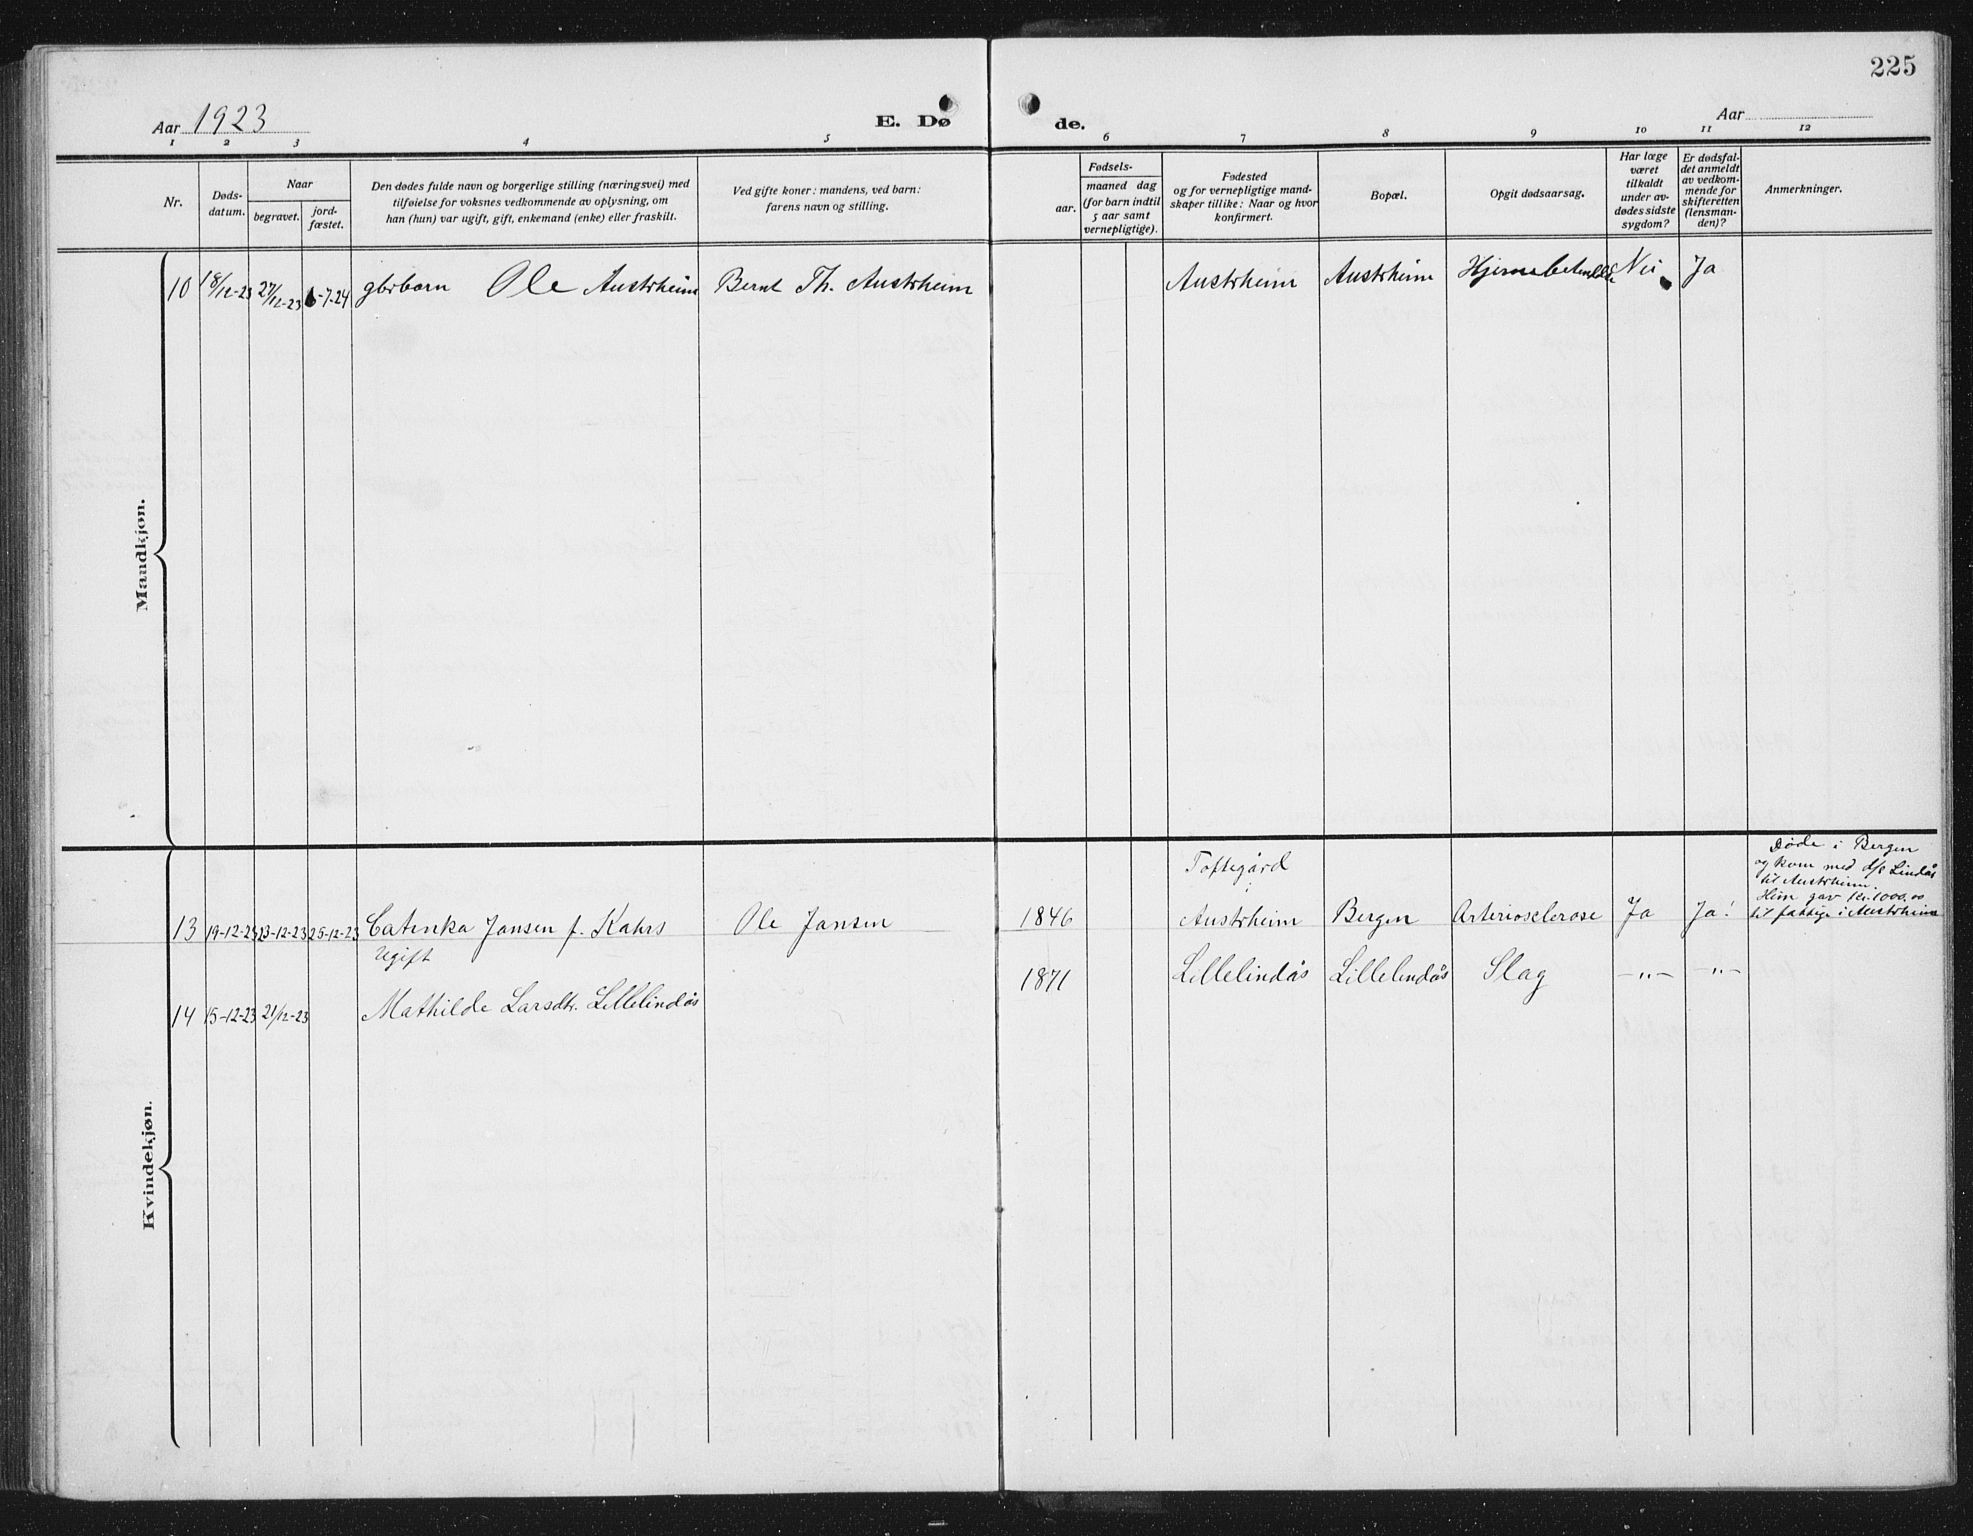 225
Aar 1923
E. Dø
de.
Aar
1 2 3 4 5 6 7 8 9 10 11 12
Nr.
Døds-
datum.
Naar
begravet.
jord-
fæstet.
Den dødes fulde navn og borgerlige stilling (næringsvei) med
tilføielse for voksnes vedkommende av oplysning, om
han (hun) var ugift, gift, enkemand (enke) eller fraskilt.
Ved gifte koner: mandens, ved barn:
farens navn og stilling.
Fødsels-
aar.
maaned dag
(for barn indtil
5 aar samt
vernepligtige).
Fødested
og for vernepligtige mand-
skaper tillike: Naar og hvor
konfirmert.
Bopæl.
Opgit dødsaarsag.
Har læge
været
tilkaldt
under av-
dødes sidste
sygdom?
Er dødsfal-
det anmeldt
av vedkom-
mende for
skifteretten
(lensman-
den)?
Anmerkninger.
Mandkjøn.
10 18/12-23 27/12-23 6-7-24 gbrbarn Ole Austrheim Bernt Th. Austrheim Austrheim Austrheim Nei Ja
Kvindekjøn.
Toftegård
Døde i Bergen
og kom med d/s Lindås
til Austrheim.
Hun gav kr. 1000,00
til fattige i Austrheim
13 19-12-23 23-12-23 25-12-23 Catinka Jansen f. Kahrs Ole Jansen 1846 Austrheim Bergen Arteriosclerose Ja Ja!
Ugift
14 15-12-23 21/12-23 Mathilde Larsdtr. Lillelindås 1871 Lillelindås Lillelindås Slag -"- -"-